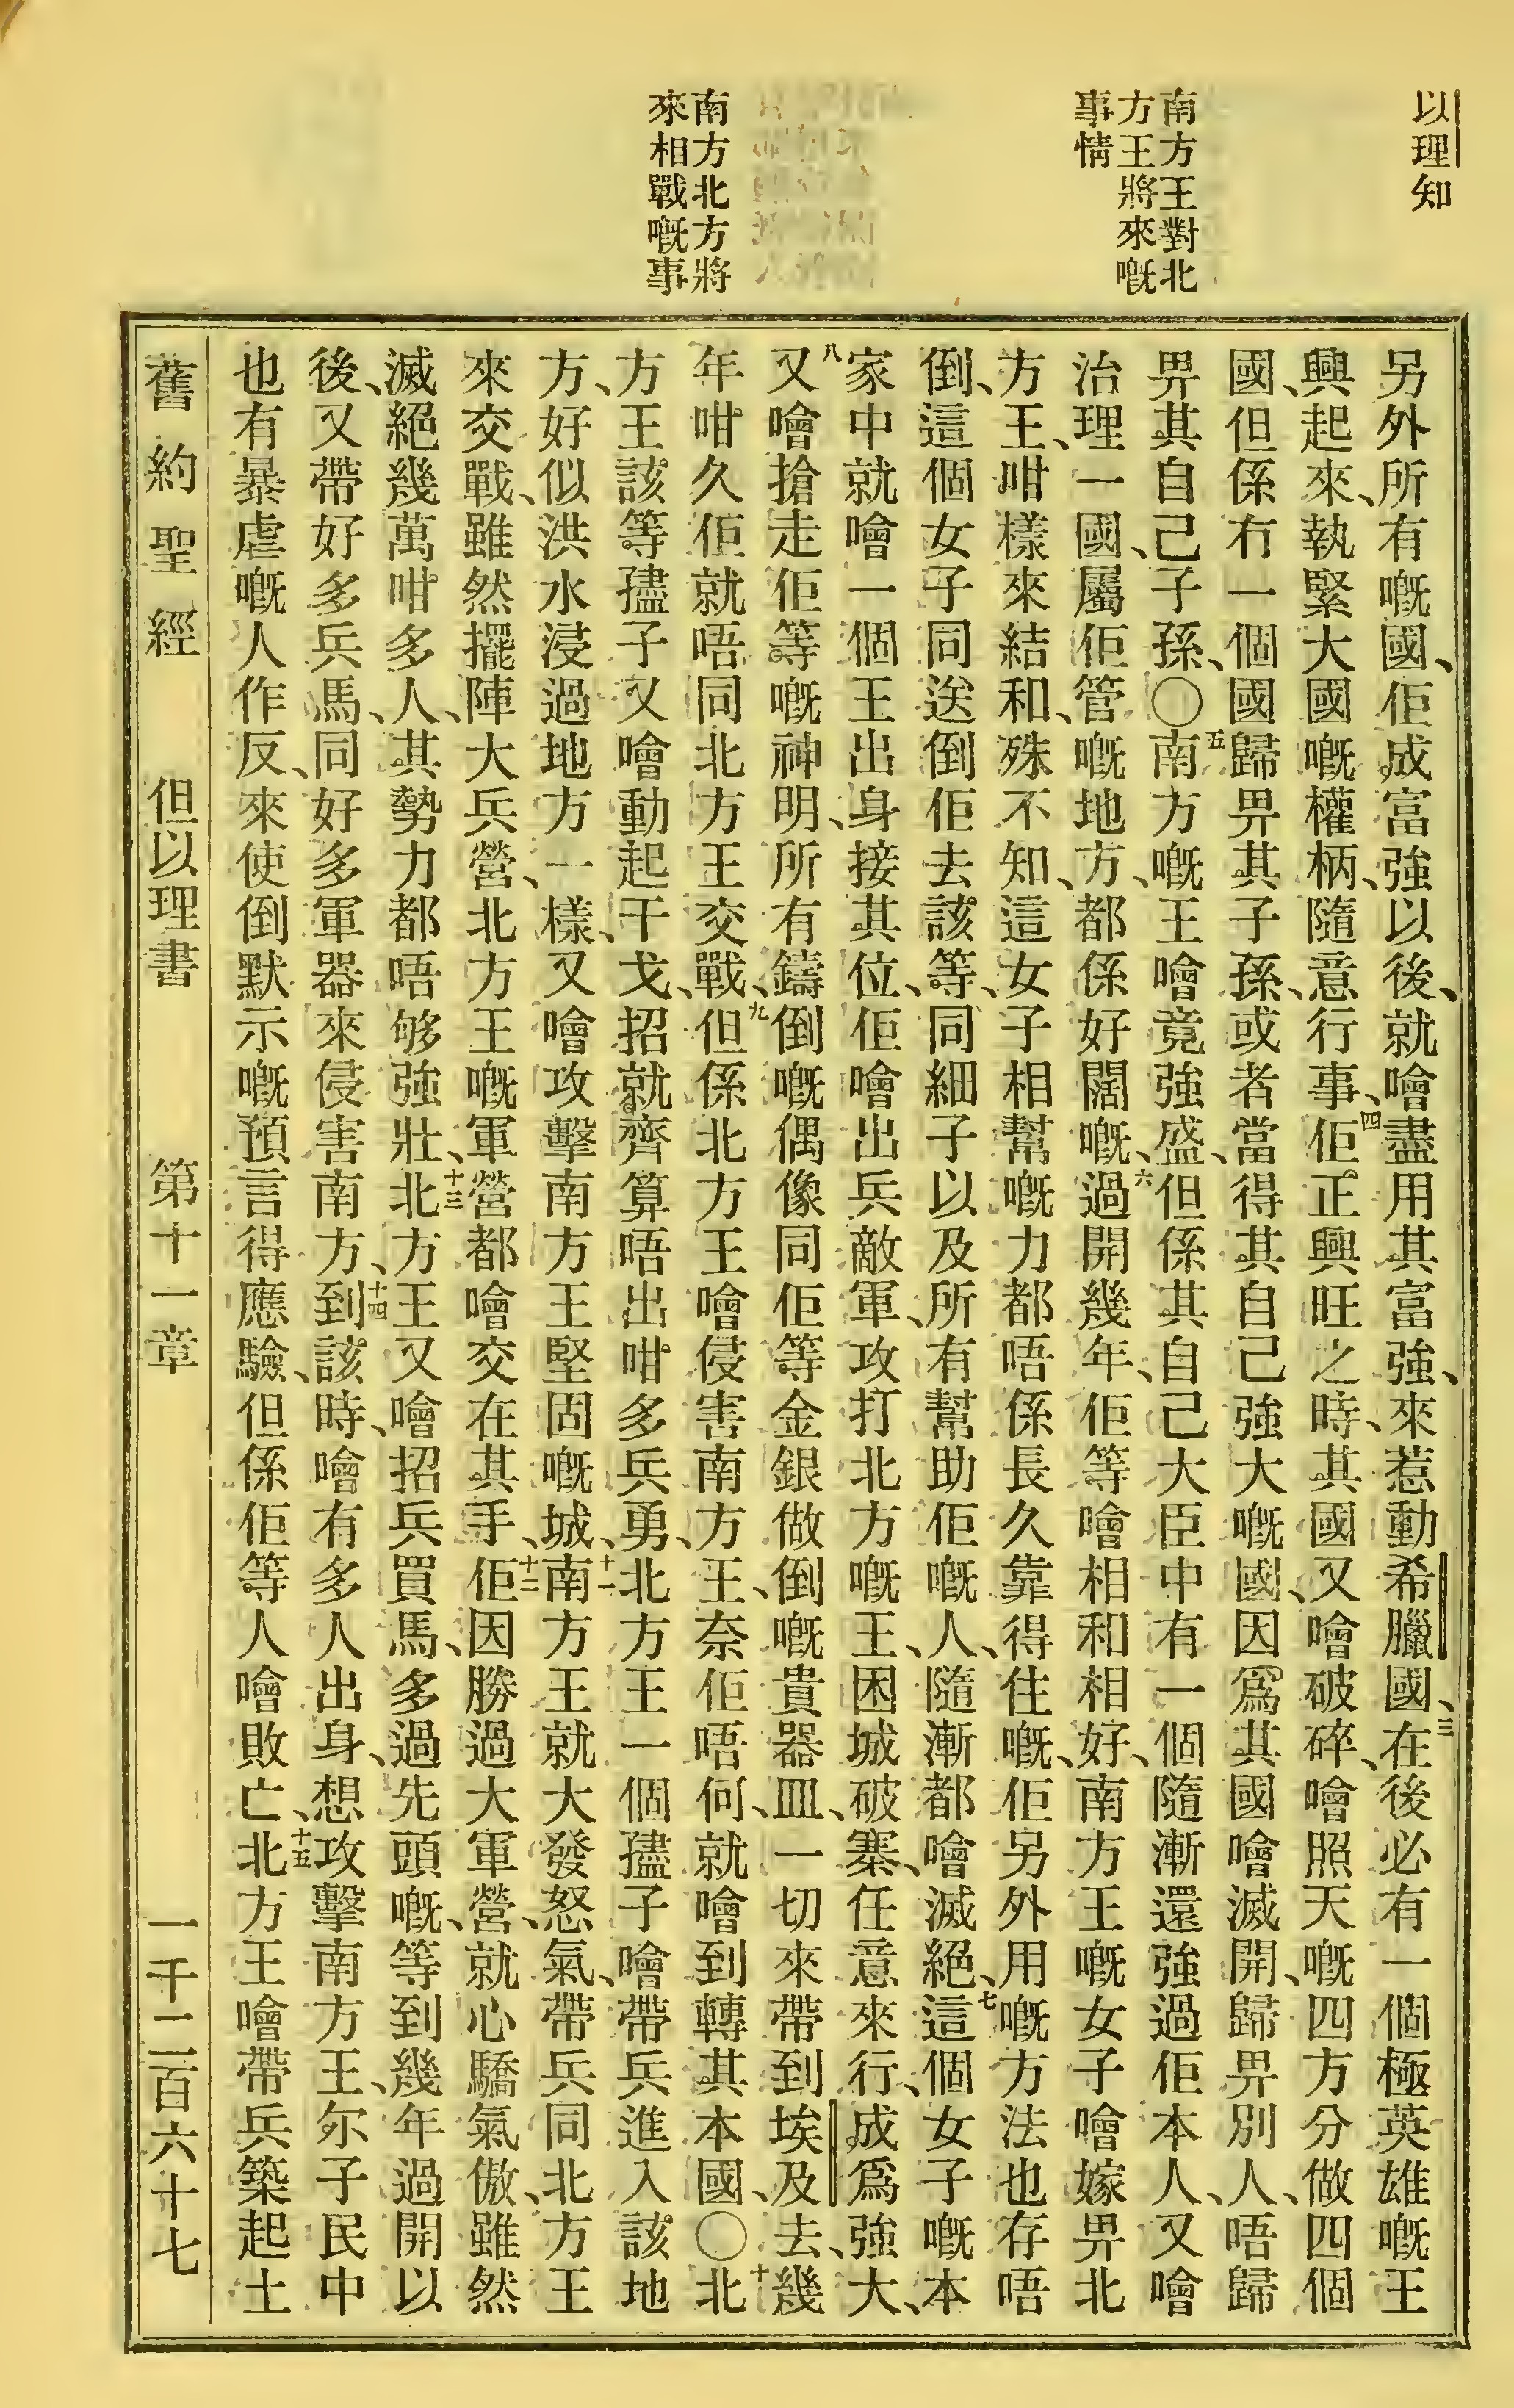 以理知
南方王對北
方王將來嘅
事情
南方北方將
來相戰嘅事
另外所有嘅國、佢成富強以後、就噲盡用其富強、來惹動希臘國、三在後必有一個極英雄嘅王
興起來、執緊大國嘅權柄、隨意行事、四佢正興旺之時、其國又噲破碎、噲照天嘅四方分做四個
國、但係冇一個國歸畀其子孫、或者當得其自己強大嘅國、因爲其國噲滅開、歸畀別人、唔歸
畀其自己子孫、〇五南方嘅王噲竟強盛、但係其自己大臣中有一個隨漸還強過佢本人、又噲
治理一國、屬佢管嘅地方、都係好闊嘅、六過開幾年、佢等噲相和相好、南方王嘅女子噲嫁畀北
方王、咁樣來結和、殊不知、這女子相幫嘅力都唔係長久靠得住嘅、佢另外用嘅方法也存唔
倒、這個女子同送倒佢去該等、同細子以及所有幫助佢嘅人、隨漸都噲滅絕、七這個女子嘅本
家中就噲一個王出身接其位、佢噲出兵敵軍、攻打北方嘅王、困城破寨、任意來行、成爲強大、
八又噲搶走佢等嘅神明、所有鑄倒嘅偶像同佢等金銀做倒嘅貴器皿、一切來帶到埃及去、幾
年咁久佢就唔同北方王交戰、九但係北方王噲侵害南方王、奈佢唔何、就噲到轉其本國、〇十北
方王該等孻子又噲動起干戈、招就齊算唔出咁多兵勇、北方王一個孻子噲帶兵進入該地
方、好似洪水浸過地方一樣、又噲攻擊南方王堅固嘅城、十一南方王就大發怒氣、帶兵同北方王
來交戰、雖然擺陣大兵營、北方王嘅軍營都噲交在其手、十二佢因勝過大軍營、就心驕氣傲、雖然
滅絕幾萬咁多人、其勢力都唔够強壯、十三北方王又噲招兵買馬、多過先頭嘅、等到幾年過開以
後、又帶好多兵馬、同好多軍器來侵害南方、十四到該時、噲有多人出身、想攻擊南方王、尔子民中
也有暴虐嘅人作反、來使倒默示嘅預言得應驗、但係佢等人噲敗亡、十五北方王噲帶兵築起土
舊約聖經　但以理書　第十一章　一千二百六十七